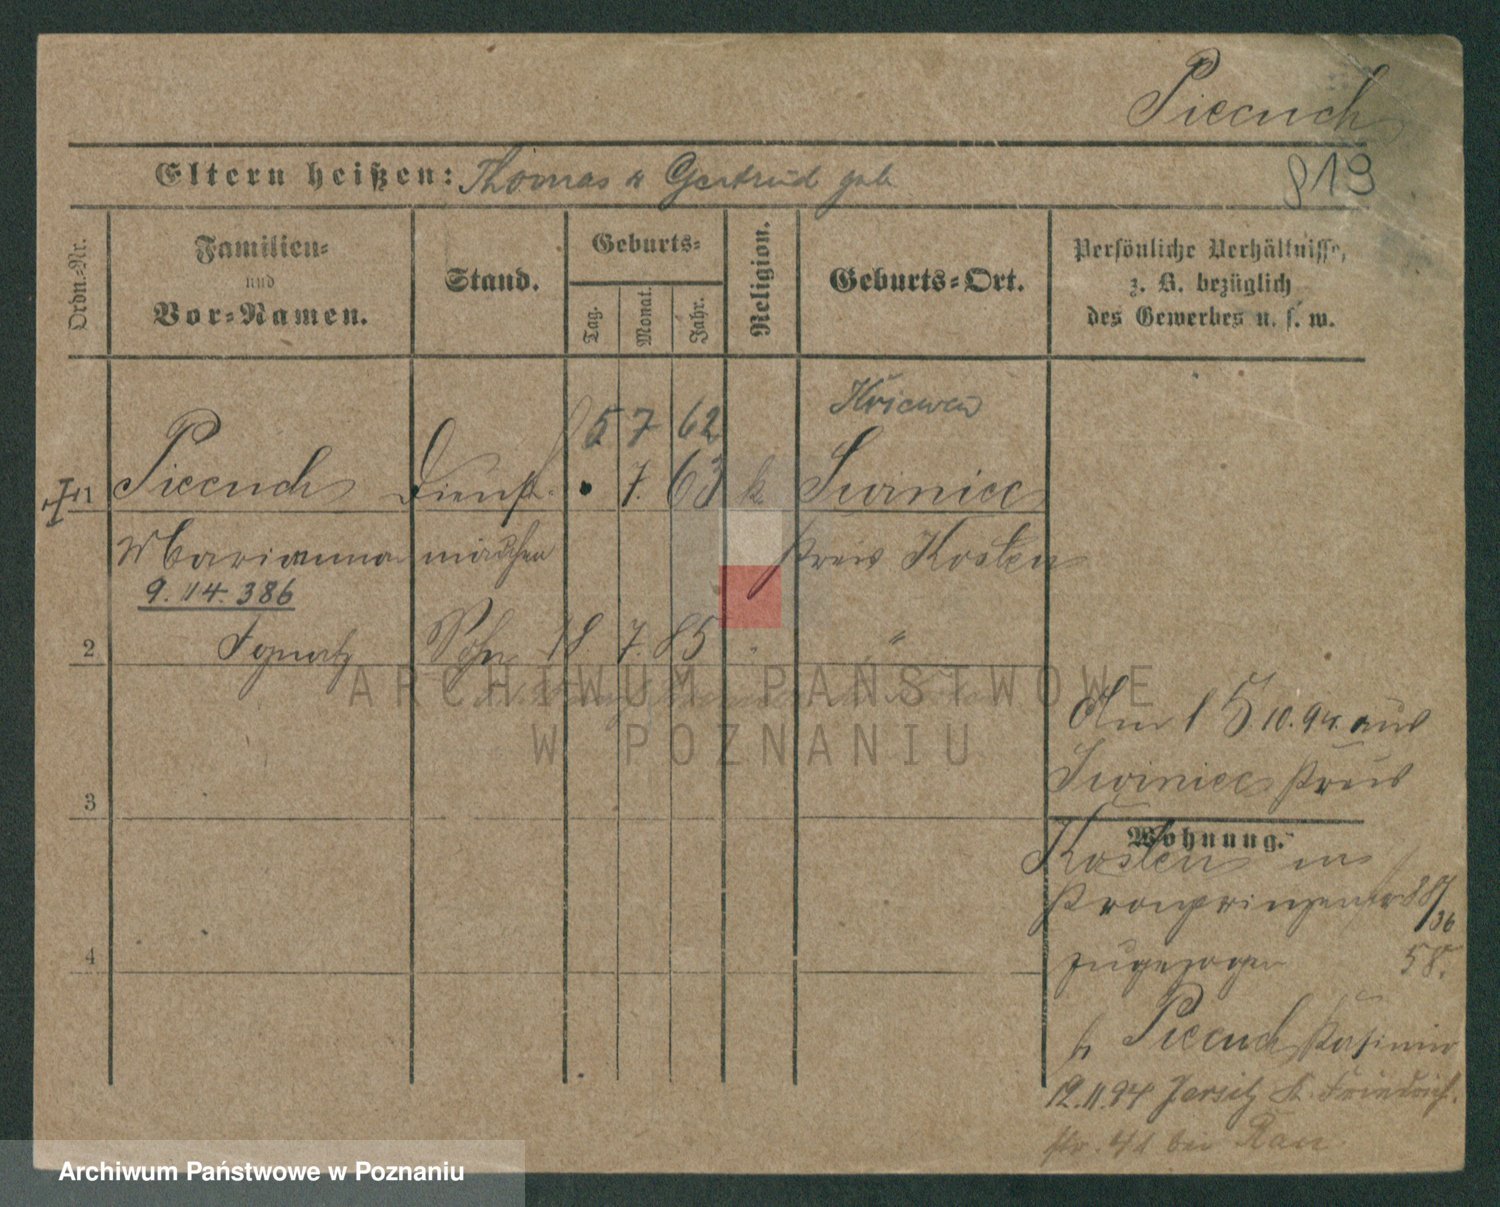 Piecuch
Eltern heißen: Thomas u Gertrud geb
819
Ordn.-Nr.
Familien-
und
Vor-Namen.
Stand.
Geburts-
Tag. Monat. Jahr.
Religion.
Geburts-Ort.
Persönliche Verhältnisse,
z. B. bezüglich
des Gewerbes u. s. w.
5 7 62 Kriewen
1 Piecuch Dienst- 7. 63 k. Swiniec
Marianna mädchen Kreis Kosten
9. 14. 386
2 Ignatz Sohn 18 7. 85 "
Am 15.10.94. aus
Swiniec Kreis
3
Wohnung.
Kosten in
Kronprinzenstr 28/36
4
zugezogen 58.
b Piecuch Kasimir
12.11.94 Jersitz Gr. Friedrich
str. 41 bei Rau
ARCHIWUM PAŃSTWOWE
W POZNANIU
Archiwum Państwowe w Poznaniu